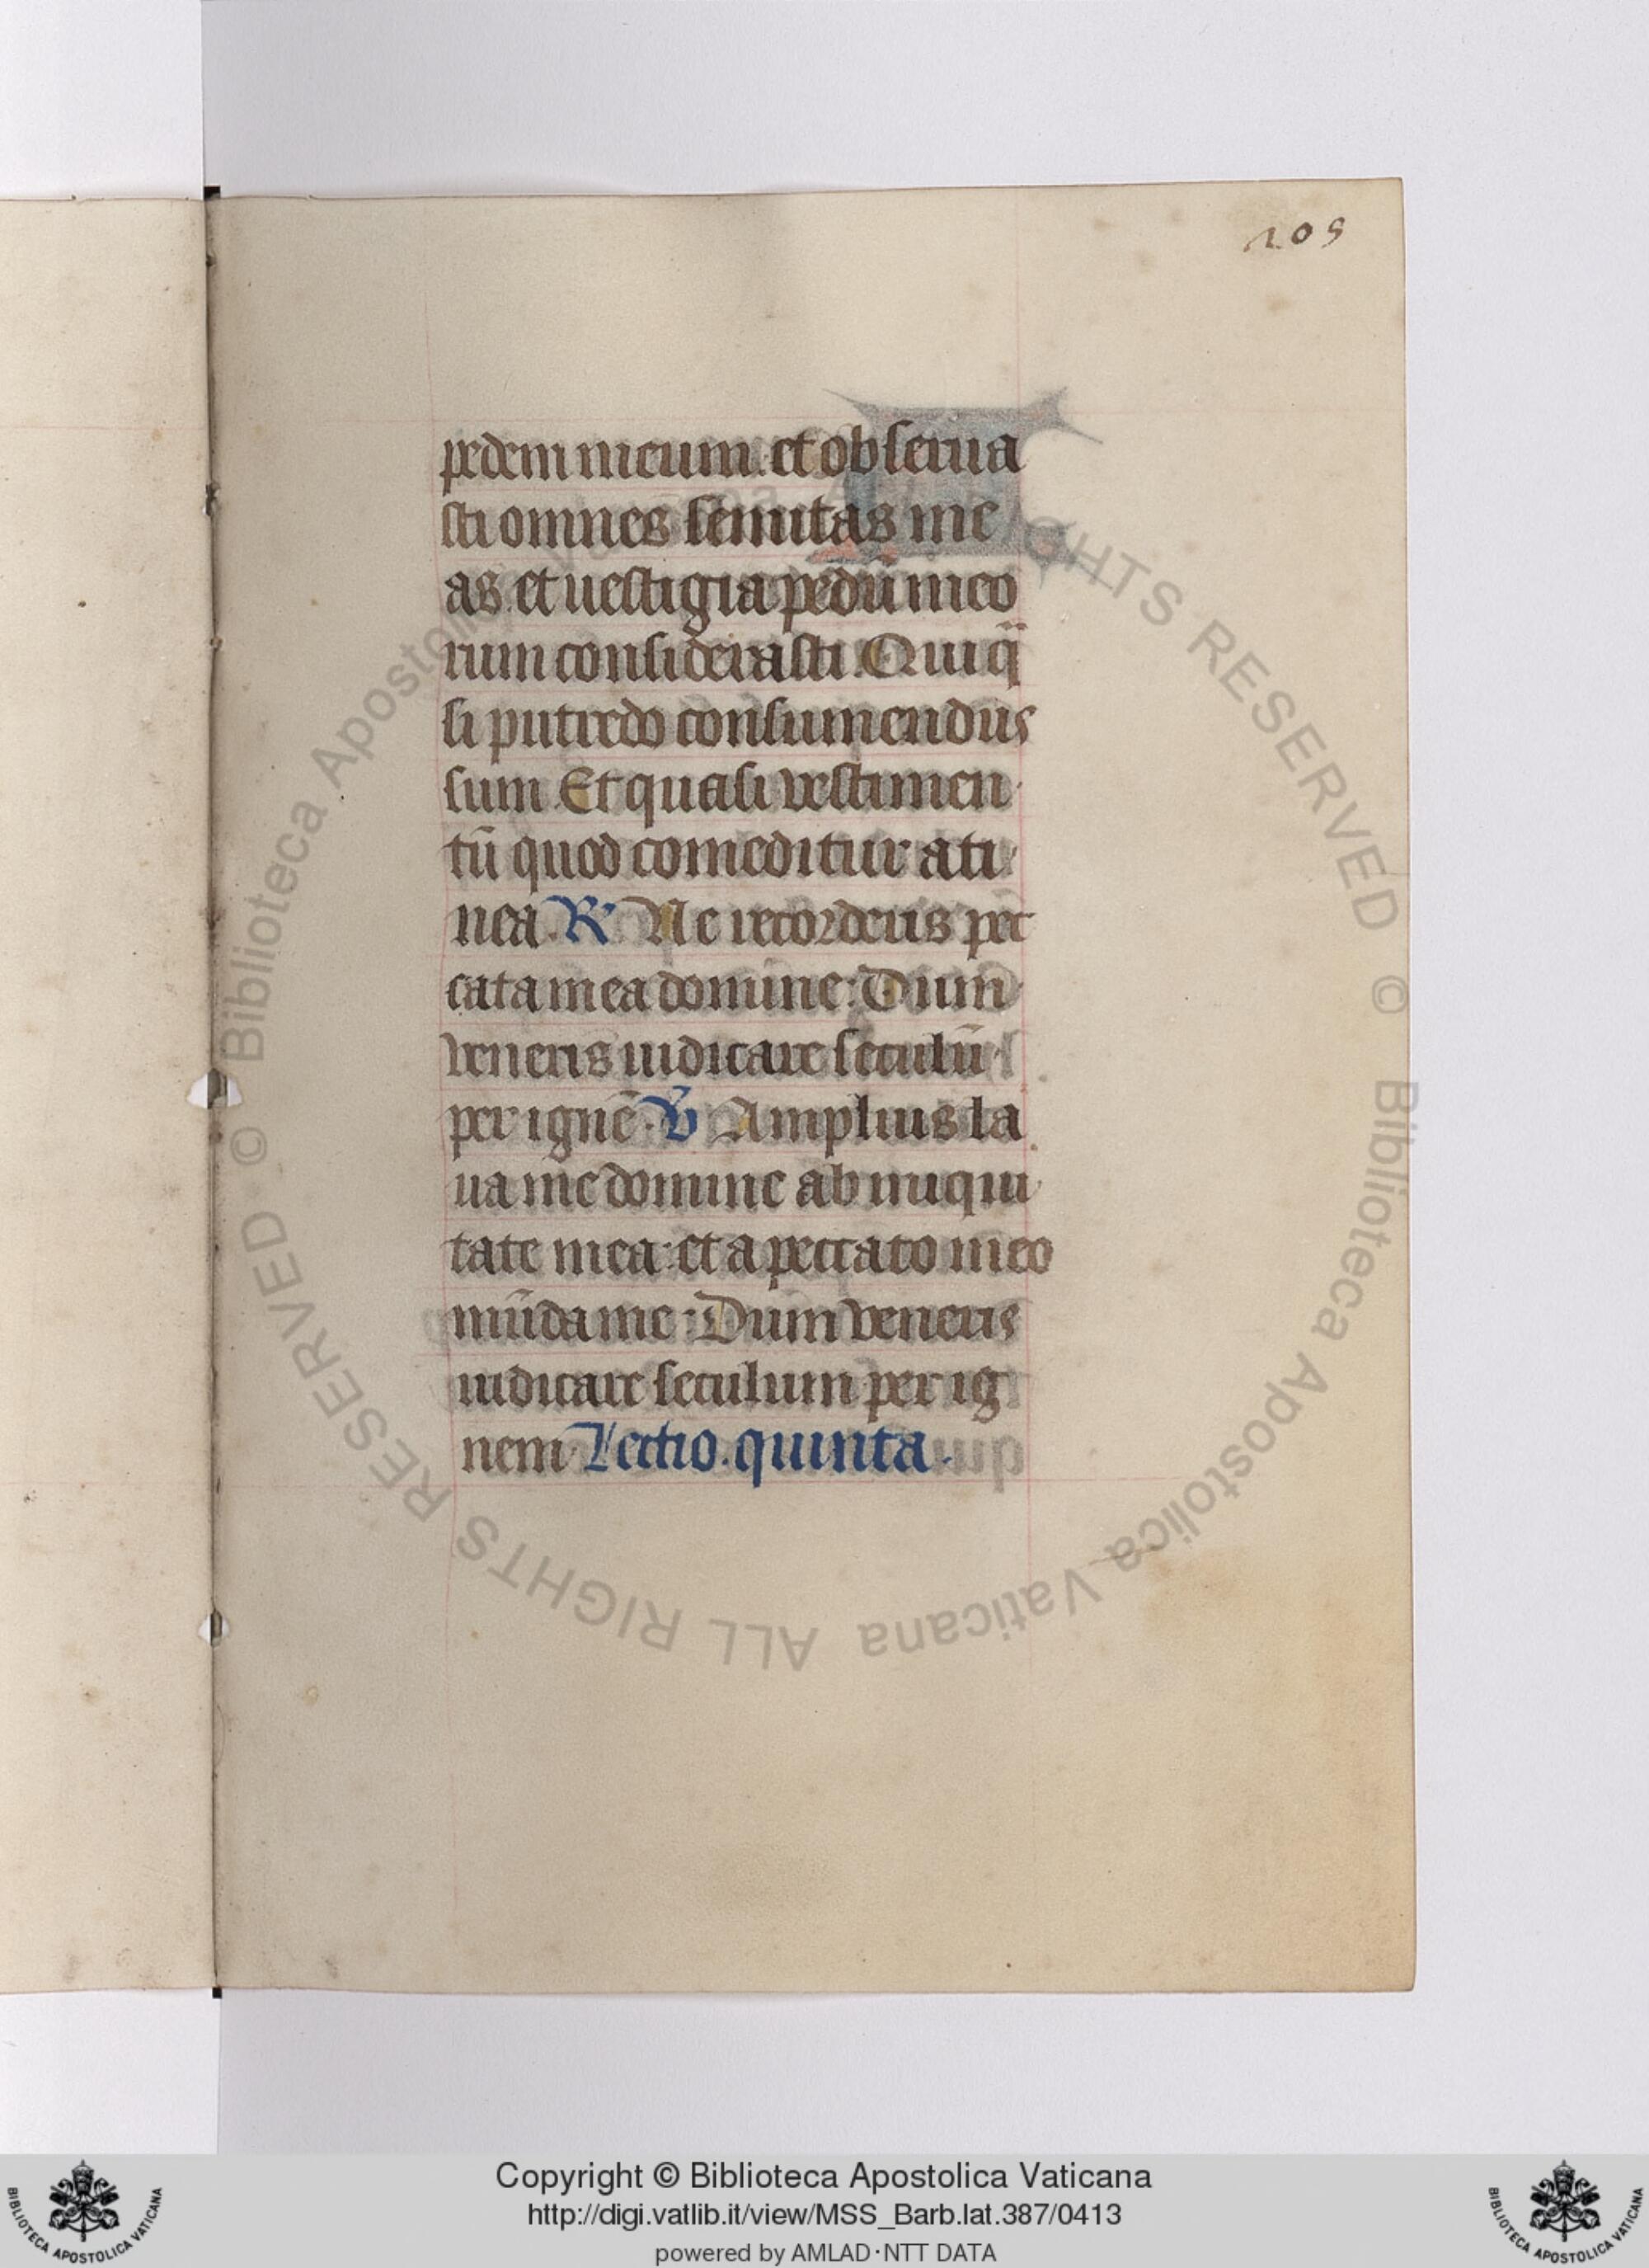 205
pedem meum. et obserua
sti omnes semitas me
as. et uestigia pedū meo
rum considerasti. Qui q̈
si putredo consumendus
sum Et quasi vestimen
tū quod comeditur a ti
nea. R̷ Ne recorderis pec
cata mea domine: Dum
veneris iudicare seculū
per ignē. V̷ Amplius la
ua me domine ab iniqui
tate mea: et a peccato meo
mūda me: Dum veneris
iudicare seculum per ig
nem Lectio. quinta.
© Biblioteca Apostolica Vaticana ALL RIGHTS RESERVED
© Biblioteca Apostolica Vaticana ALL RIGHTS RESERVED
Copyright © Biblioteca Apostolica Vaticana
http://digi.vatlib.it/view/MSS_Barb.lat.387/0413
powered by AMLAD·NTT DATA
BIBLIOTECA APOSTOLICA VATICANA
BIBLIOTECA APOSTOLICA VATICANA